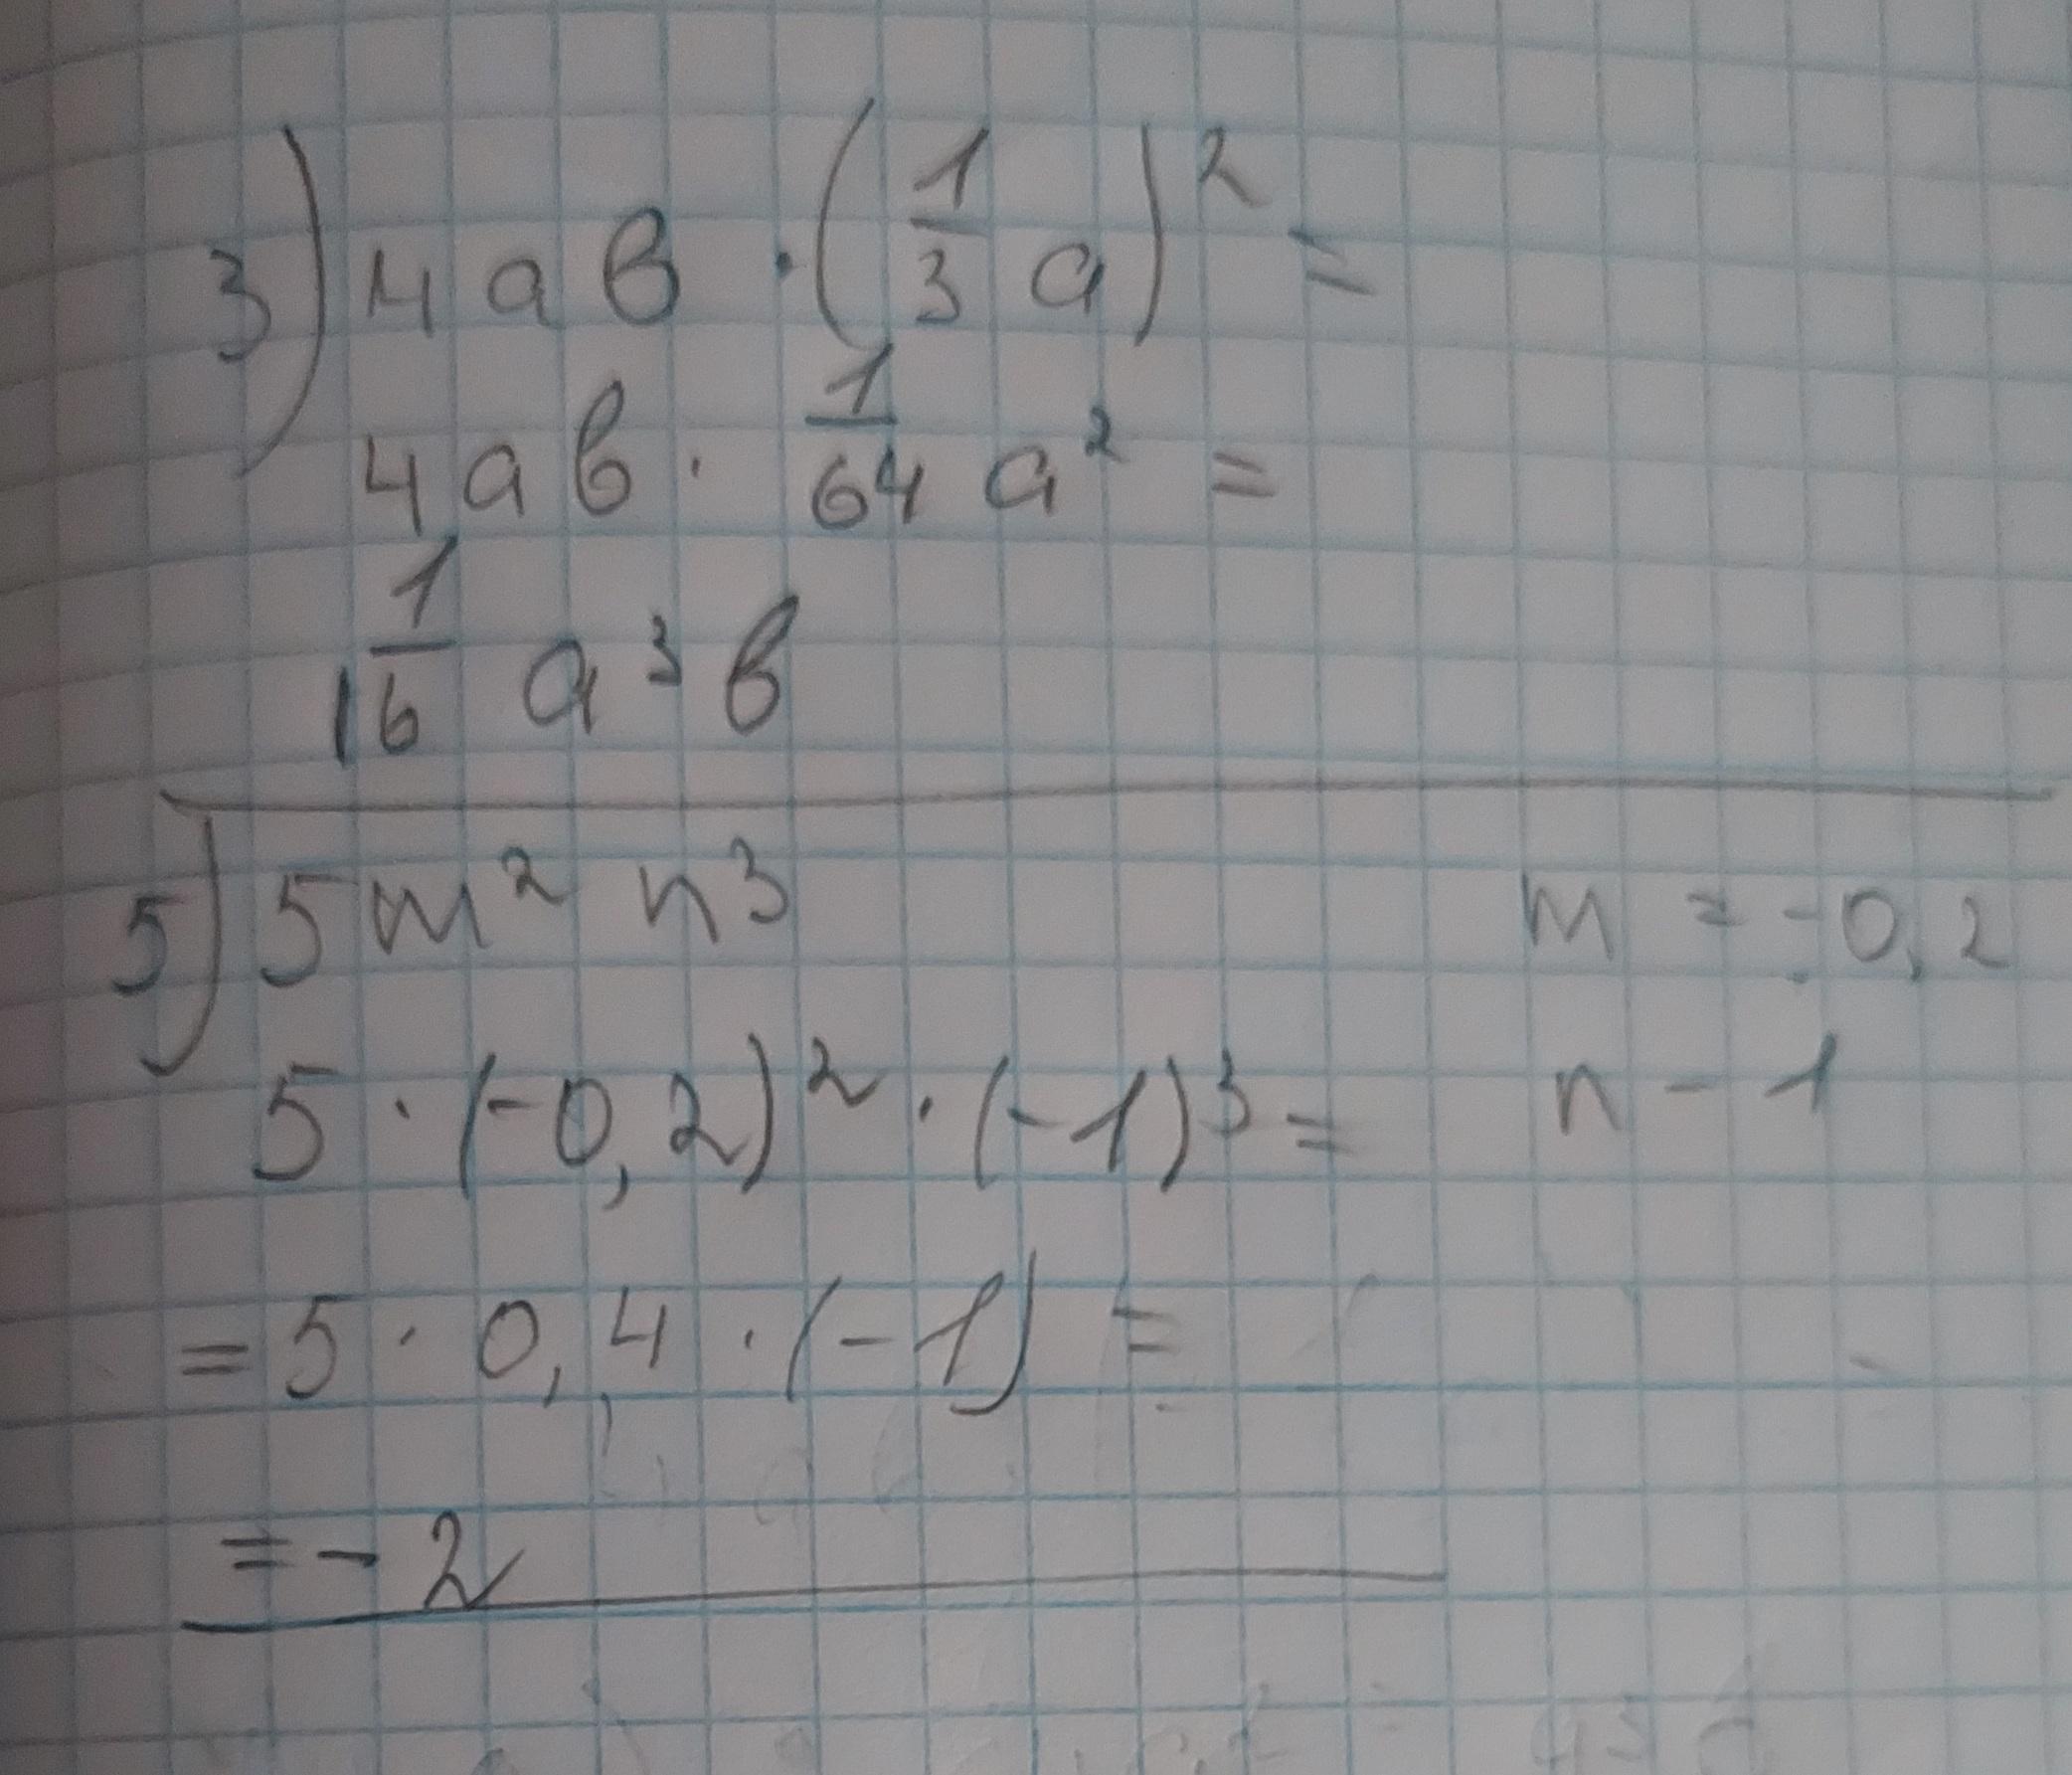 3) 4ав · (1/3 а)² =
4ав · 1/64 а² =
1/16 а³в
5) 5m² n³ m = -0,2
5 · (-0,2)² · (-1)³ = n - 1
= 5 · 0,4 · (-1) =
= - 2